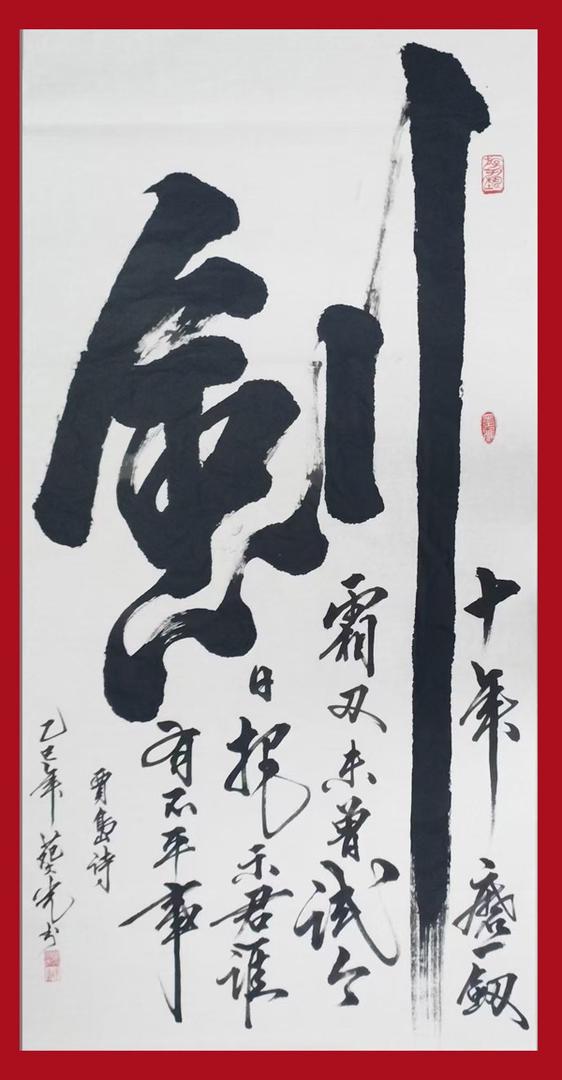 剑
十年磨一釼
霜刃未曾试今
日把示君谁
有不平事
賈島诗
乙巳年 光书